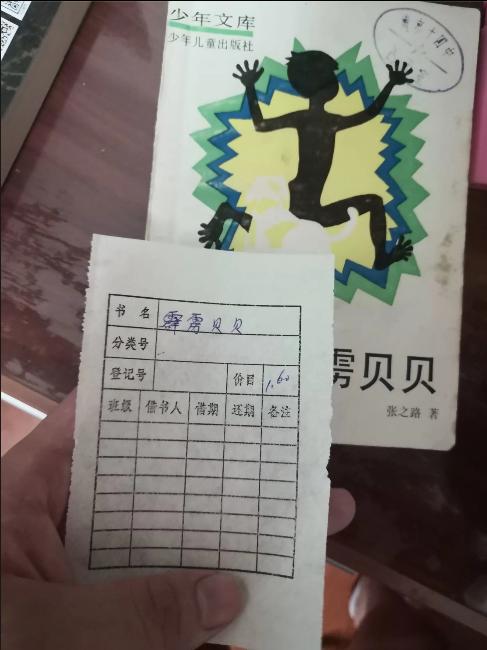 少年文库
少年儿童出版社
雳贝贝
张之路 著
书 名 霹雳贝贝
分类号
登记号 价目 1.60
班级 借书人 借期 还期 备注